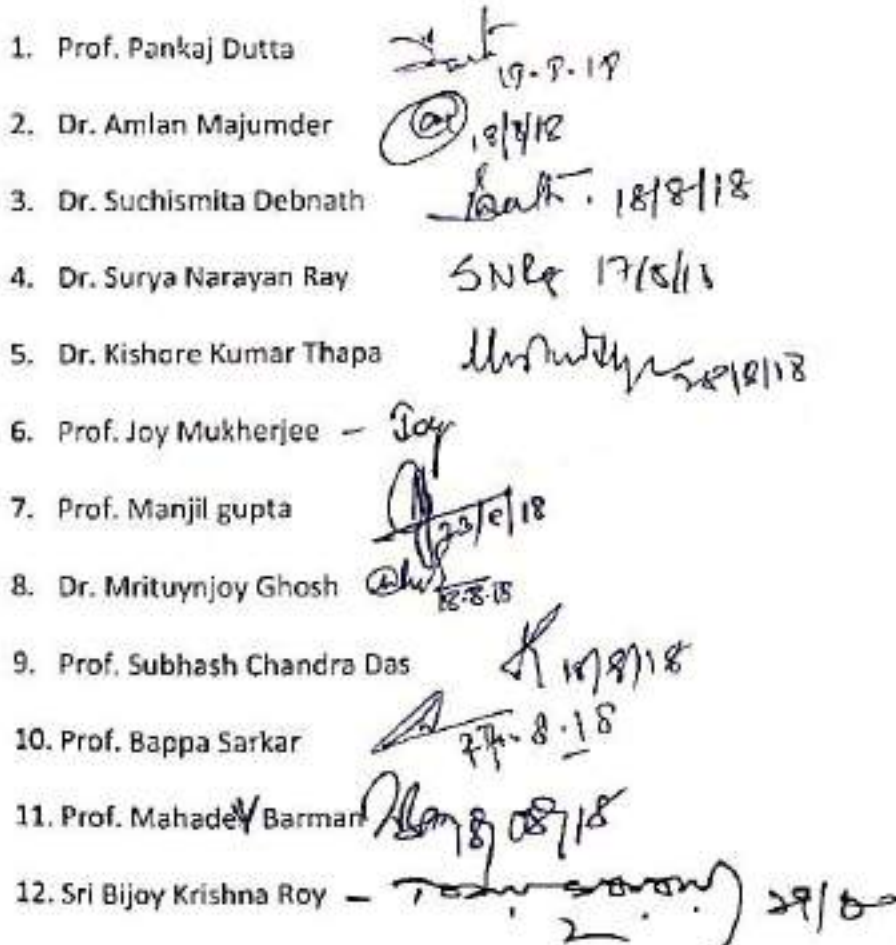 1. Prof. Pankaj Dutta
2. Dr. Amlan Majumder 18/8/18
3. Dr. Suchismita Debnath 18/8/18
4. Dr. Surya Narayan Ray SNRay 17/8/18
5. Dr. Kishore Kumar Thapa
6. Prof. Joy Mukherjee – Joy
7. Prof. Manjil gupta 23/8/18
8. Dr. Mrituynjoy Ghosh 18.8.18
9. Prof. Subhash Chandra Das 18/8/18
10. Prof. Bappa Sarkar
11. Prof. Mahadev Barman 08/18
12. Sri Bijoy Krishna Roy –